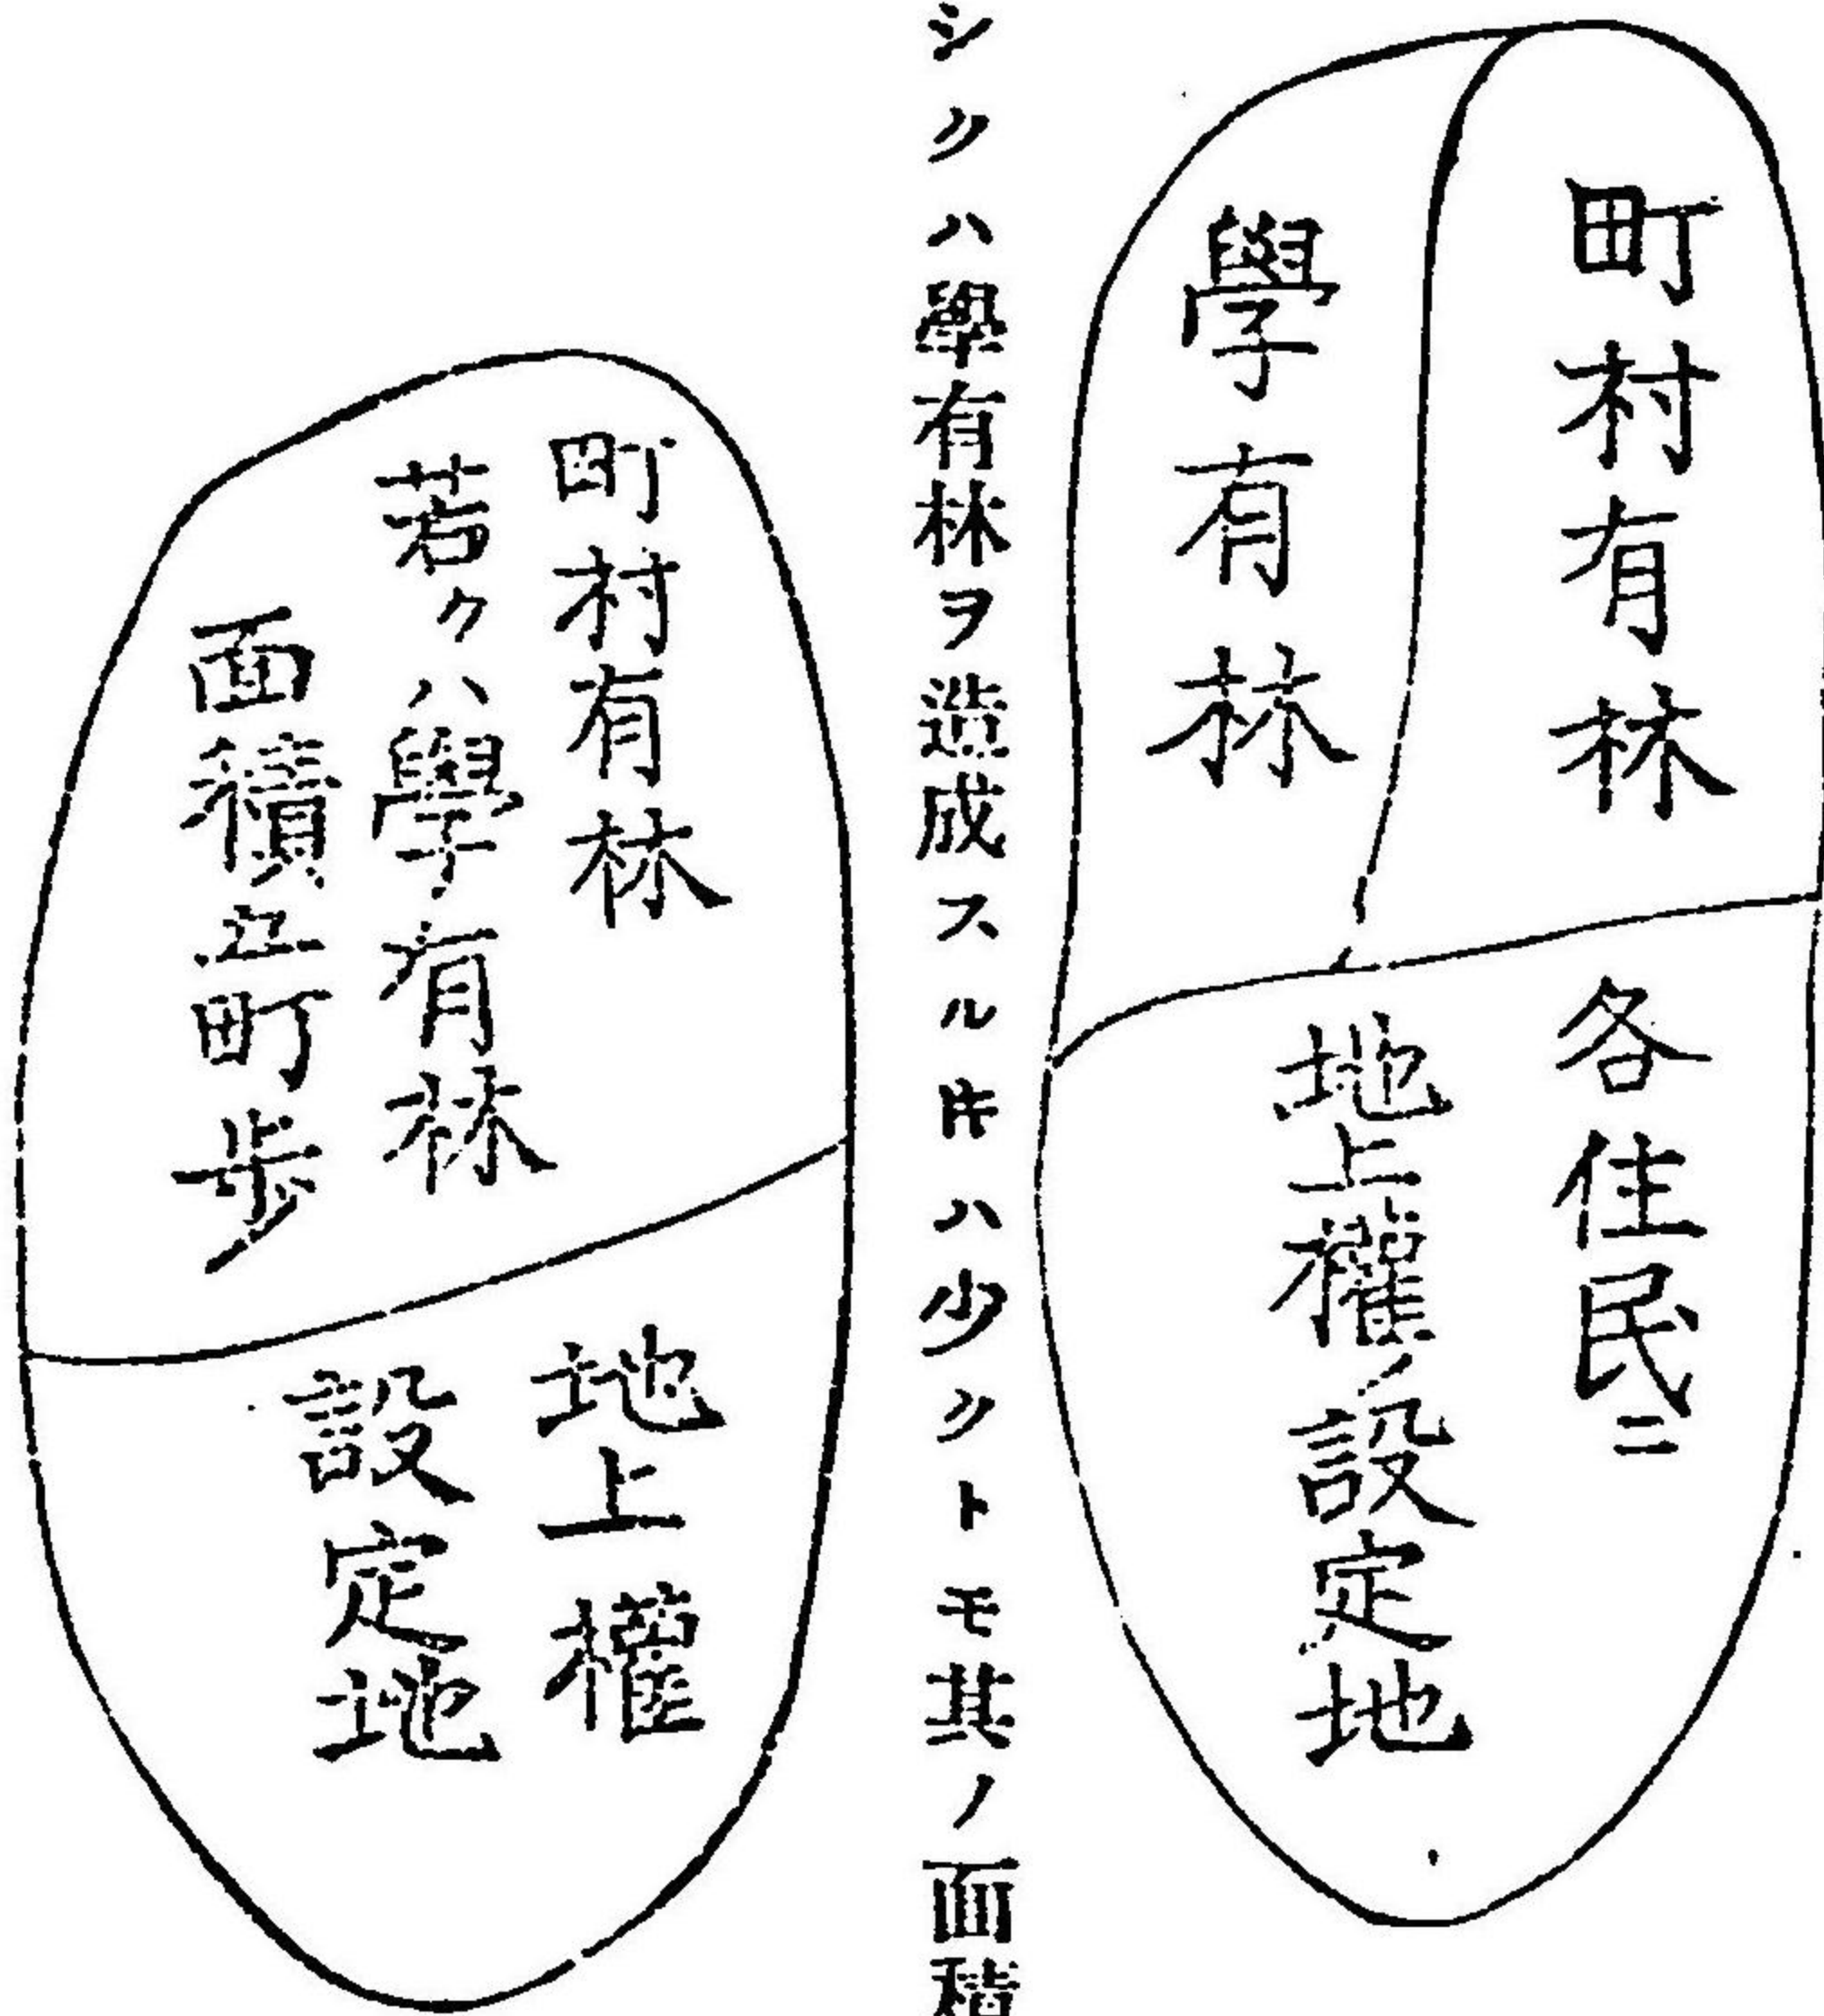 町村有林
學有林
各住民ニ
地上權ノ設定地
シクハ學有林ヲ造成スル𪜈ハ少クトモ其ノ面積
町村有林
若クハ學有林
面積五町歩
地上權
設定地